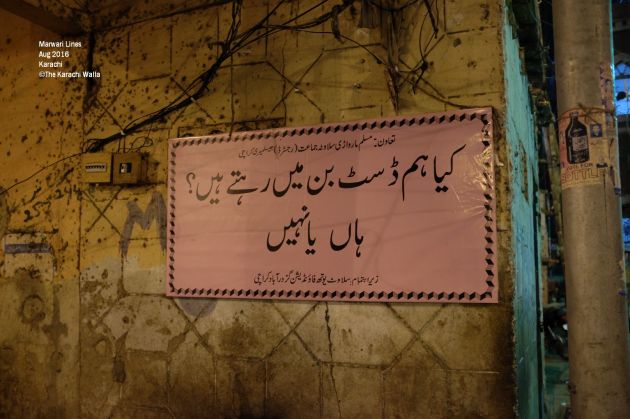 Marwari Lines
Aug 2016
Karachi
©The Karachi Walla
تعاون:- مسلم مارواڑی سلاوٹہ جماعت (رجسٹرڈ) کراچی
کیا ہم ڈسٹ بن میں رہتے ہیں؟
ہاں یا نہیں
زیر اہتمام سلاوٹ یوتھ فاؤنڈیشن گزدر آباد کراچی
BOTTLE